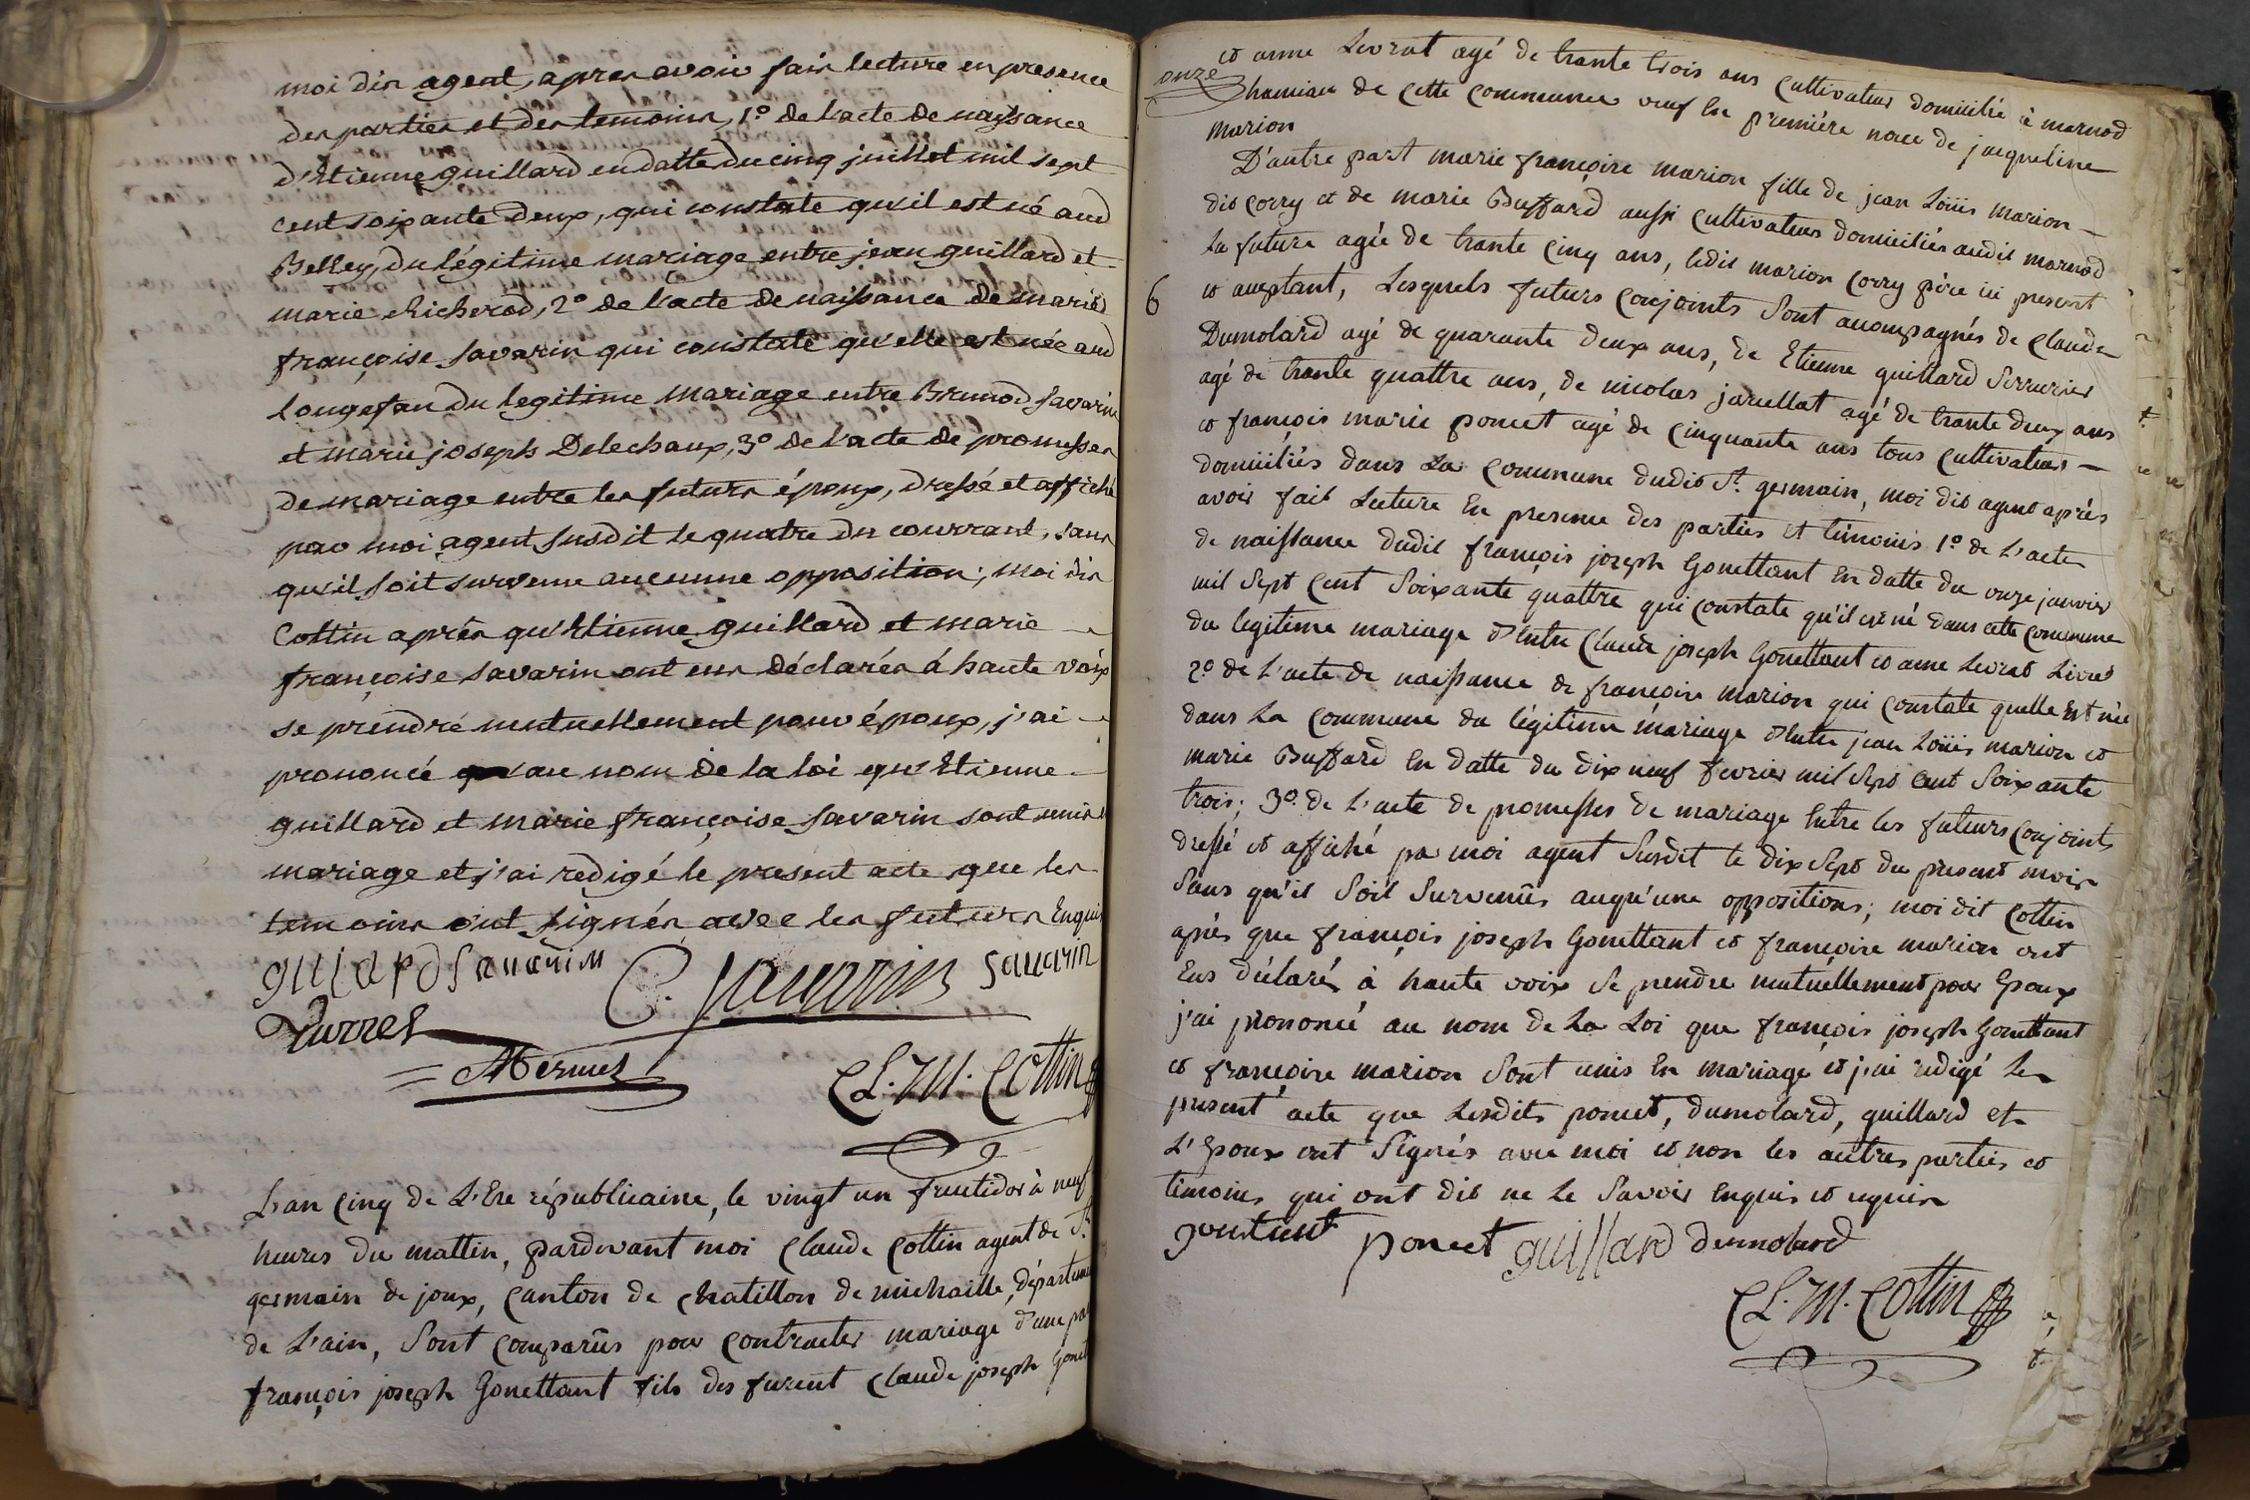 moi dit agent, apres avoir fait lecture en presence
des parties et des temoins, 1º de l'acte de naissance
d'Etienne guillard en datte du cinq juillet mil sept
cent soixante deux, qui constate qu'il est né aud
Belley, du légitime mariage entre jean guillard et
marie richerod, 2º de l'acte de naissance de marie
françoise savarin qui constate qu'elle est née aud
Longefan du legitime mariage entre Brunod savarin
et marie joseph Delechaux, 3º de l'acte de promesses
de mariage entre les futurs époux, dressé et affiché
par moi agent susdit le quatre du courrant, sans
qu'il soit survenu aucunne opposition; moi dit
Cottin après qu'Etienne guillard et marie
françoise savarin ont eus déclarés á haute voix
se prendre mutuellement pour époux, j'ai
prononcé au nom de la loi qu'Etienne
guillard et marie françoise savarin sont unis
mariage et j'ai redigé le present acte que les
temoins ont signés avec les futurs Enquis
guilard savarin C. savarin savarin
Burret
Mermet
CL. M. Cottin
L'an cinq de L'Ere républicaine, le vingt un fructidor à neuf
heures du mattin, pardevant moi Claude Cottin agent de St.
germain de joux, Canton de chatillon de michaille, départeme
de L'ain, Sont Comparûs pour Contracter mariage d'une pa
françois joseph Gonettant fils des furent Claude joseph Gonet
onze
et anne Levrat agé de trante trois ans Cultivateur domicilié à marnod
hamiau de Cette Commune veuf En première noce de jacqueline
marion
D'autre part marie françoise marion fille de jean Loüis marion
dit Corry et de marie Buffard aussi Cultivateurs domiciliés audit marnod
La future agée de trante Cinq ans, ledit marion Corry père ici present
6
et aceptant, Lesquels futurs Conjoints Sont acompagnés de Claude
Dumolard agé de quarante deux ans, de Etienne guillard Serrurier
agé de trante quattre ans, de nicolas jarellat agé de trante deux ans
et françois marie poncet agé de Cinquante ans tous Cultivateurs
domiciliés dans La Commune dudit St. germain, moi dit agent après
avoir fait Lecture En presence des parties et témoins 1º de L'acte
de naissance dudit françois joseph Gonettant En datte du onze janvier
mil Sept Cent Soixante quattre qui Constate qu'il est né dans cette Commune
du legitime mariage d'Entre Claude joseph Gonettant et anne Levrat
2º de L'acte de naissance de françoise marion qui Constate quelle Est née
dans La Commune du légitime mariage d'Entre jean Loüis marion et
marie Buffard En datte du dix neuf fevrier mil Sept Cent Soixante
trois; 3º de L'acte de promesses de mariage Entre les futurs Conjoints
dressé et affiché par moi agent Susdit le dix Sept du present mois
Sans qu'il Soit Survenûs auqu'une oppositions; moi dit Cottin
après que françois joseph Gonettant et françoise marion ont
Eus déclaré à haute voix Se prendre mutuellement pour Epoux
j'ai prononcé au nom de La Loi que françois joseph Gonettant
et françoise marion Sont unis En mariage et j'ai redigé Le
present acte que Lesdits poncet, dumolard, guillard et
L'Epoux ont Signés avec moi et non les autres parties et
témoins qui ont dit ne Le Savoir Enquis et requis
poncet guillard dumolard
CL. M. Cottin